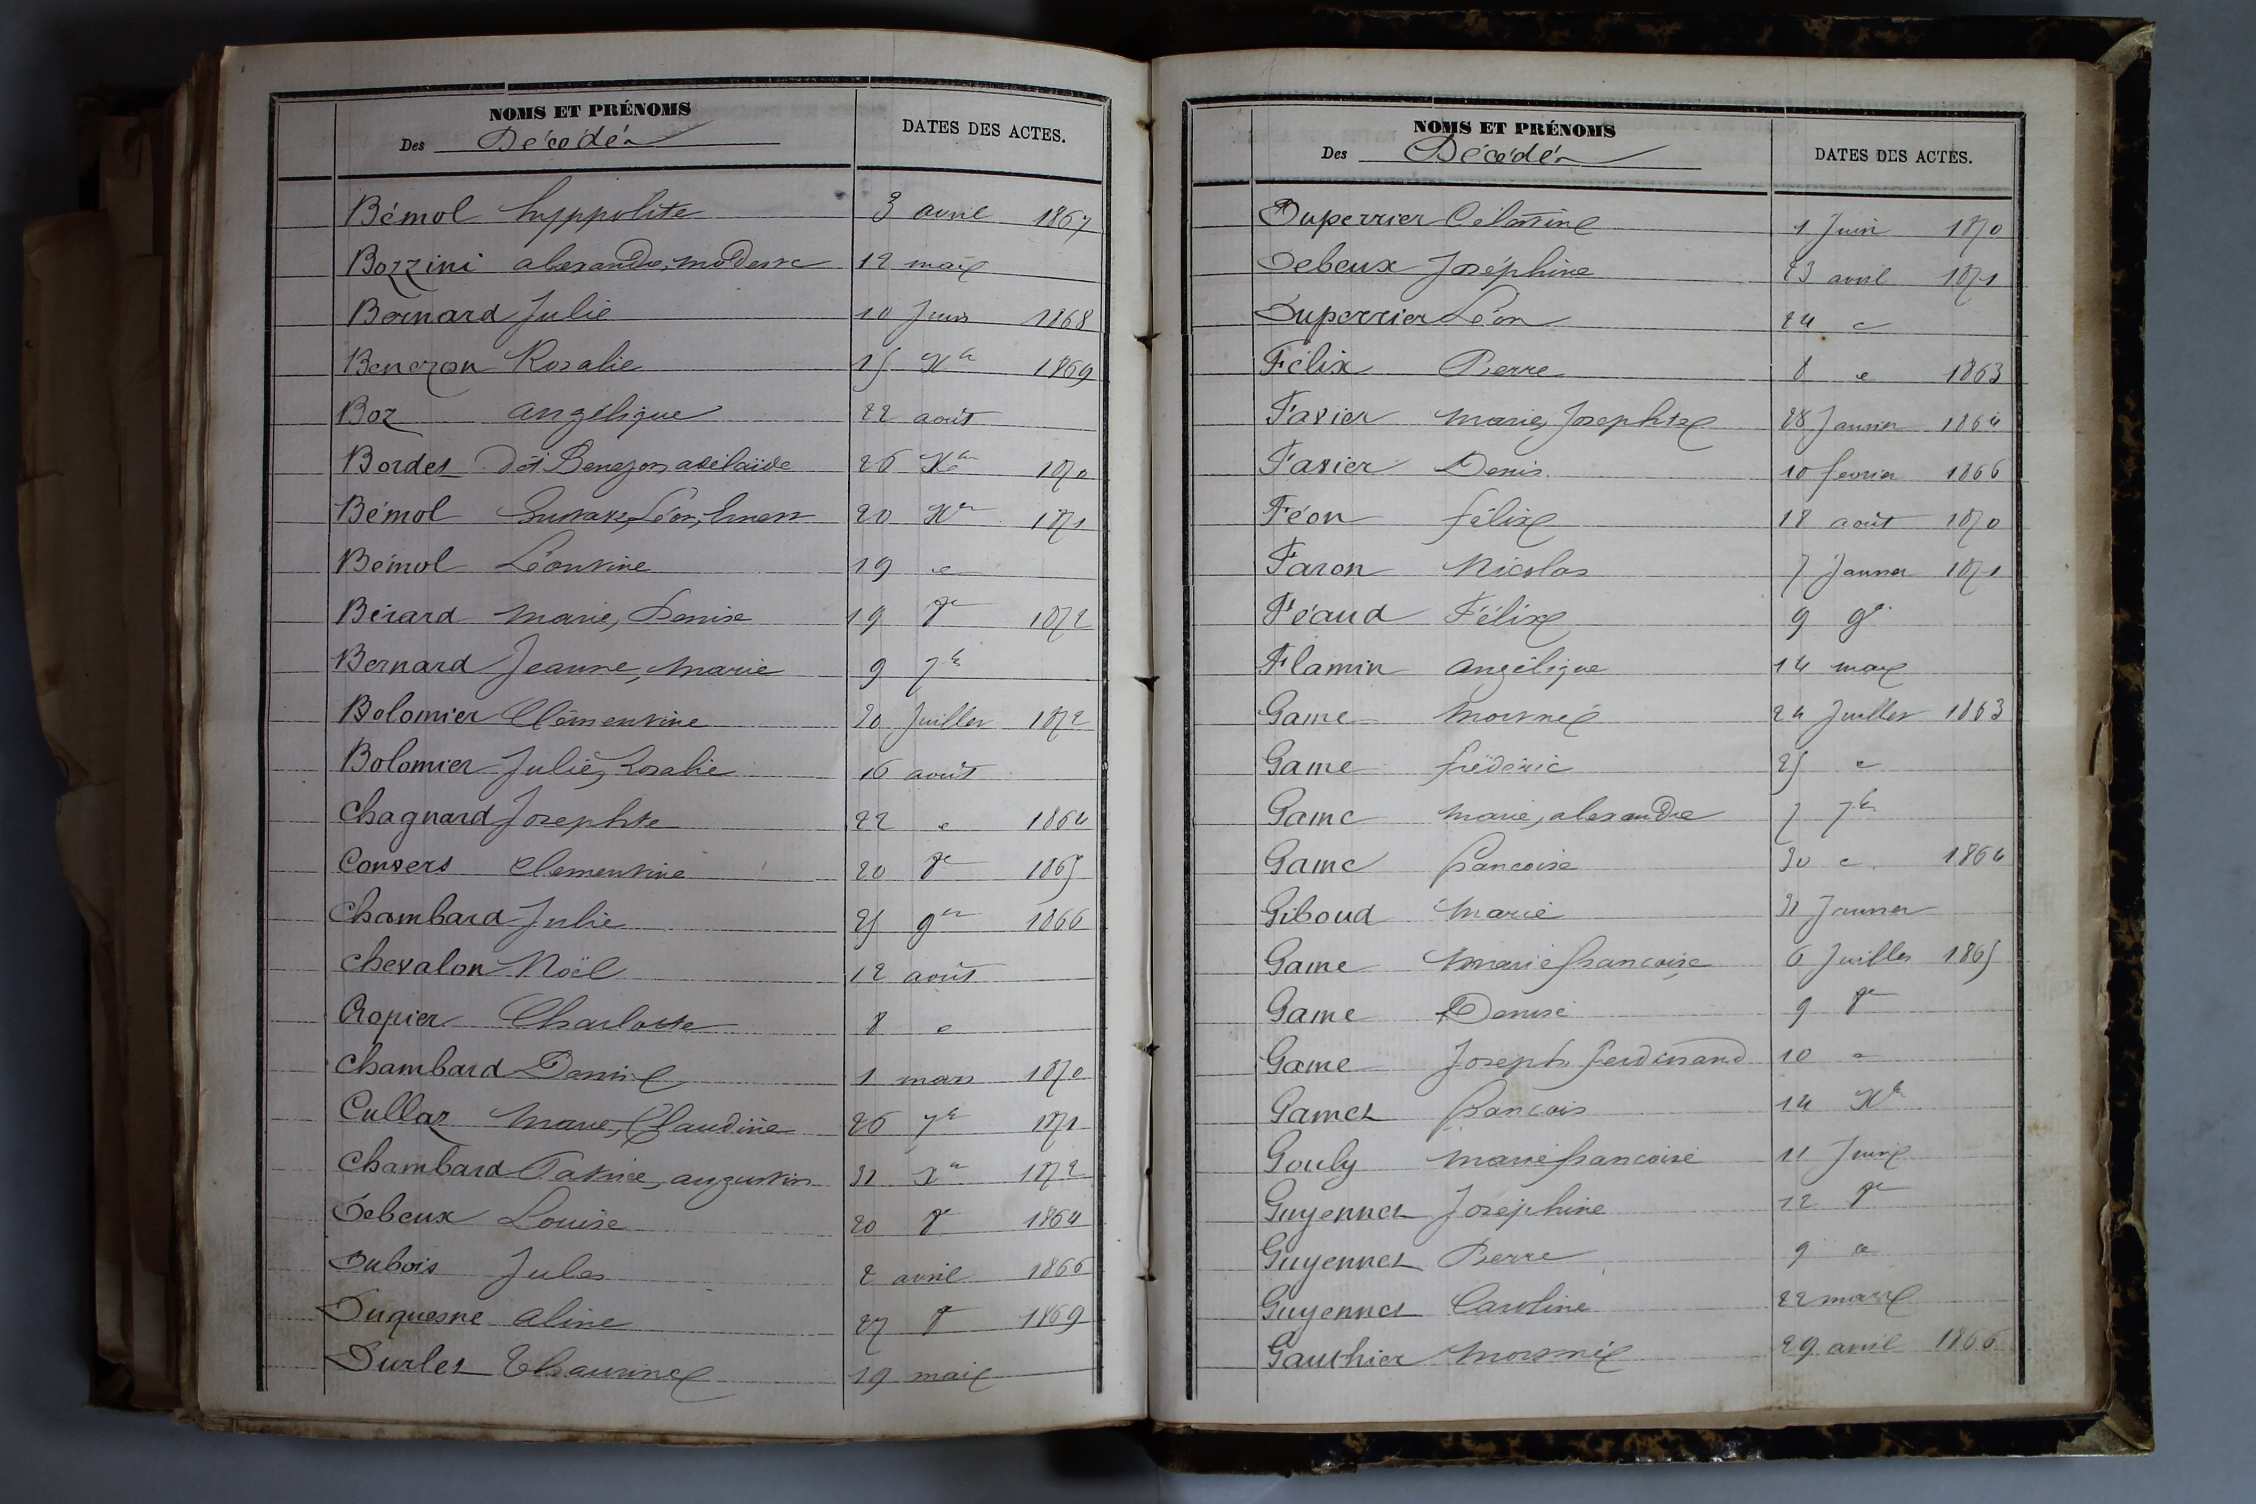 NOMS ET PRÉNOMS
Des Décédés
DATES DES ACTES.
Bémol hyppolite 3 avril 1867
Bozzini alexandre, modeste 12 mai
Bernard Julie 10 Juin 1868
Benezon Rosalie 15 Xbre 1869
Boz angélique 22 août
Bordes dôt Benezon adélaïde 26 Xbre 1870
Bémol Gustave, Léon, Ernest 20 Xbre 1871
Bémol Léontine 19 "
Bérard marie, Denise 19 8bre 1872
Bernard Jeanne, marie 9 7bre
Bolomier Clémentine 20 Juillet 1872
Bolomier Julie, Rosalie 16 août
Chagnard Josephte 22 " 1864
Convers Clementine 20 8bre 1865
Chambard Julie 25 9bre 1866
Chevalon Noël 12 août
Cropier Charlotte 8 "
Chambard Daniel 1 mars 1870
Cullaz Marie, Claudine 26 7bre 1871
Chambard Patrice, augustin 31 Xbre 1872
Debeux Louise 20 8bre 1864
Dubois Jules 2 avril 1866
Duquesne aline 27 8bre 1869
Durles 19 mai
NOMS ET PRÉNOMS
Des Décédés
DATES DES ACTES.
Duperrier Célestine 1 Juin 1870
Debeux Joséphine 23 avril 1871
Duperrier Léon 24 "
Félix Pierre 8 " 1863
Favier marie, Josephte 28 Janvier 1864
Favier Denis 10 fevrier 1866
Féon félix 18 août 1870
Faron Nicolas 7 Janvier 1871
Féaud Félix 9 9bre
Flamin angélique 14 mai
Game mort né 24 Juillet 1863
Game frédéric 25 "
Game marie, alexandre 7 7bre
Game francoise 30 " 1864
Giboud Marie 31 Janvier
Game Marie francoise 6 Juillet 1865
Game Denise 9 8bre
Game Joseph ferdinand 10 "
Games francois 14 Xbre
Gouly marie francoise 11 Juin
Guyennes Joséphine 12 8bre
Guyennes Pierre 9 "
Guyennes Caroline 22 mars
Gauthier mort né 29 avril 1866